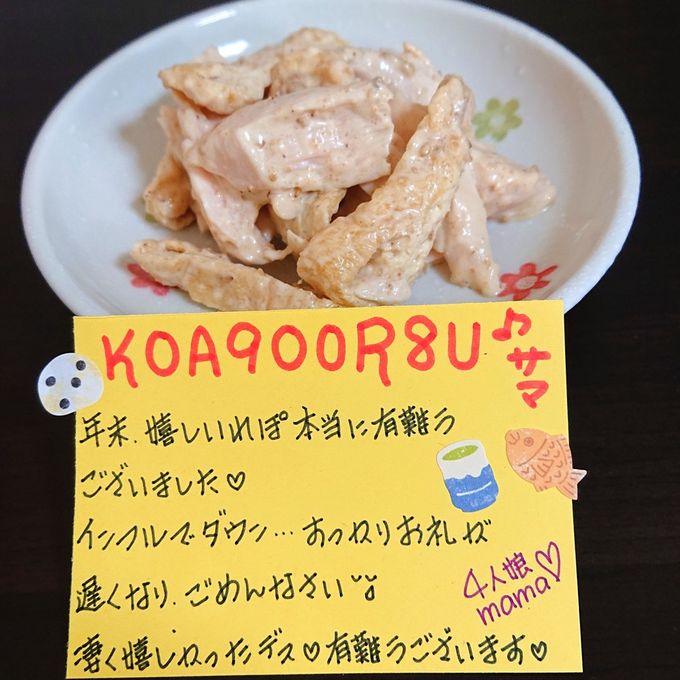 KOA900R8U♪サマ
年末、嬉しいれぽ本当に有難う
ございました♡
インフルでダウン…すっかりお礼が
遅くなり、ごめんなさい
凄く嬉しかったデス♡有難うございます♡
4人娘
mama♡